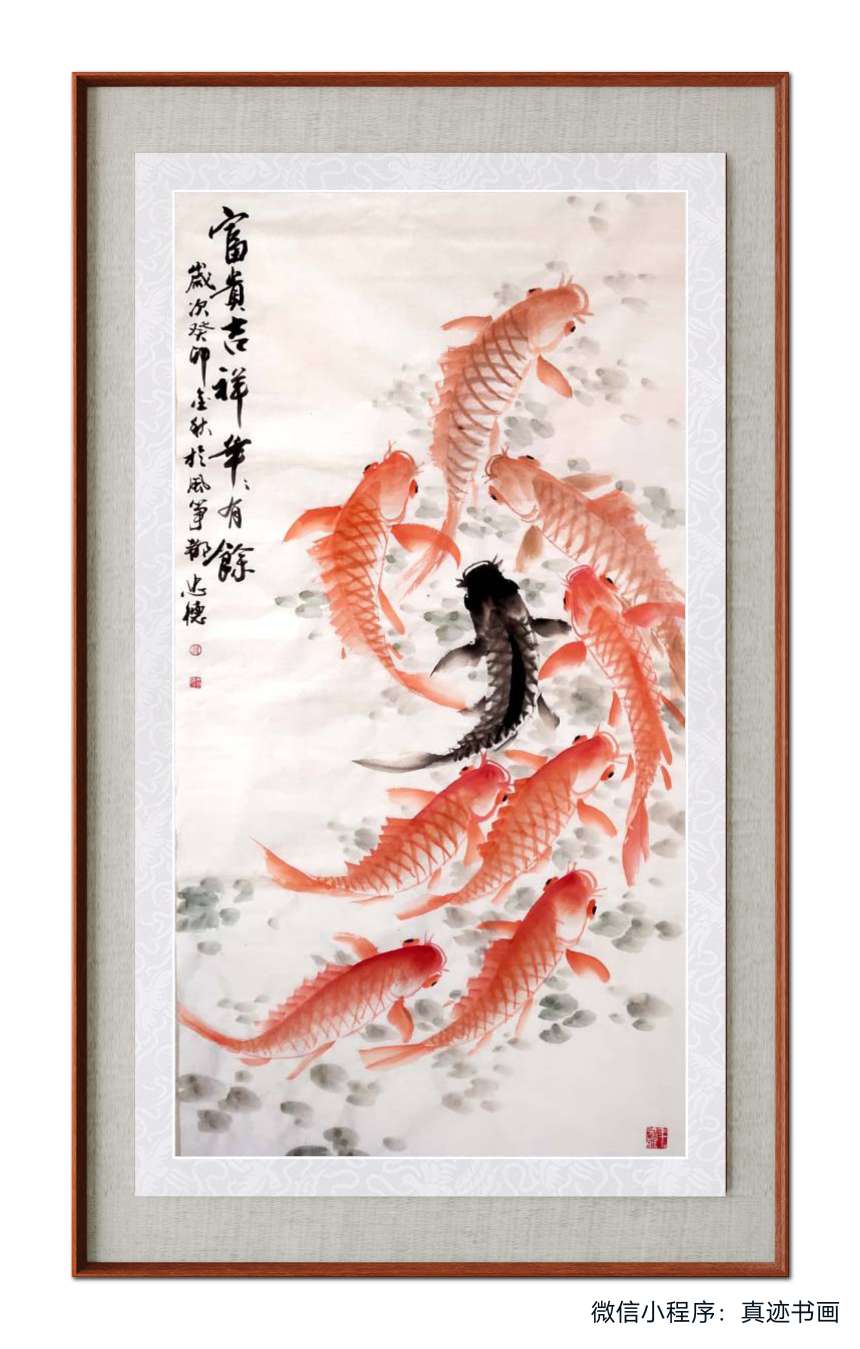 富貴吉祥年〻有餘
歲次癸卯金秋於風箏都忠德
微信小程序：真迹书画